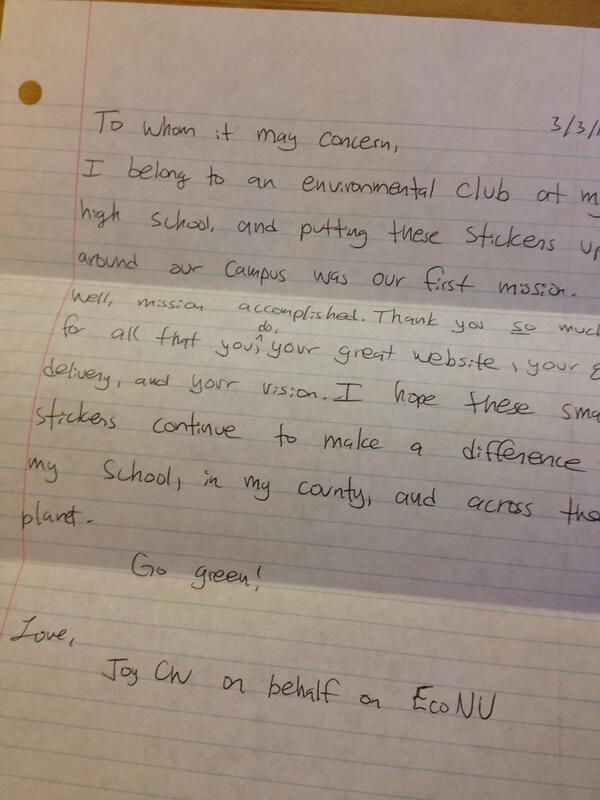 3/3/1
To whom it may concern,
I belong to an environmental club at m
high school, and putting these stickers up
around our campus was our first mission.
Well, mission accomplished. Thank you so much
for all that you do, your great website, your
delivery, and your vision. I hope these sma
stickers continue to make a difference
my school, in my county, and across the
planet.
Go green!
Love,
Joy on behalf on EcoNU